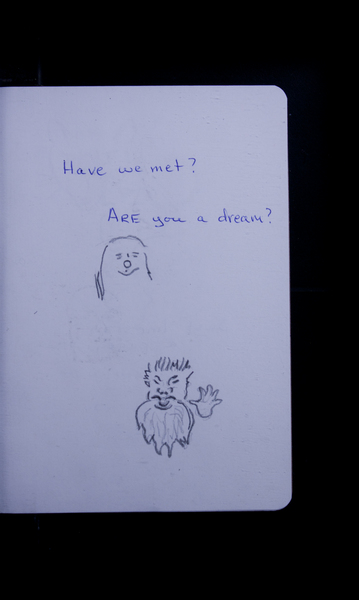 Have we met?
ARE you a dream?